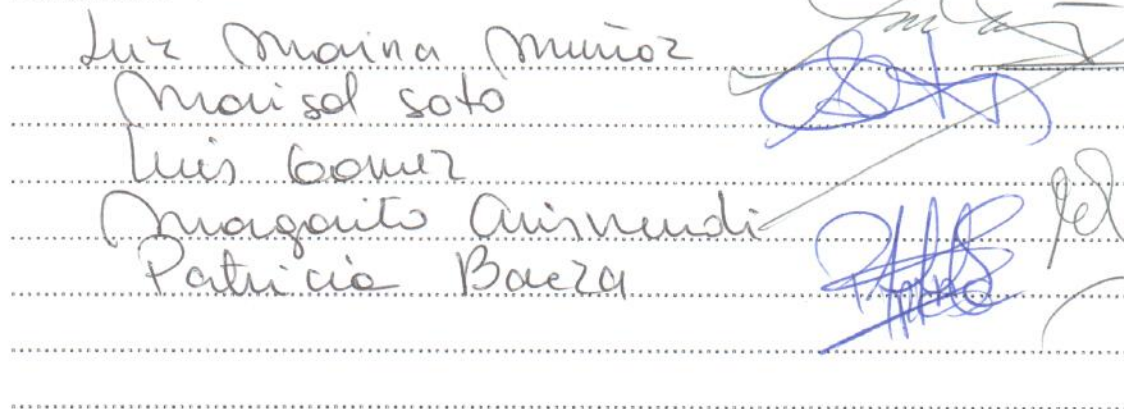 Luz Marina Muñoz
Marisol Soto
Luis Gomez
Margarita Arismendi
Patricia Baeza